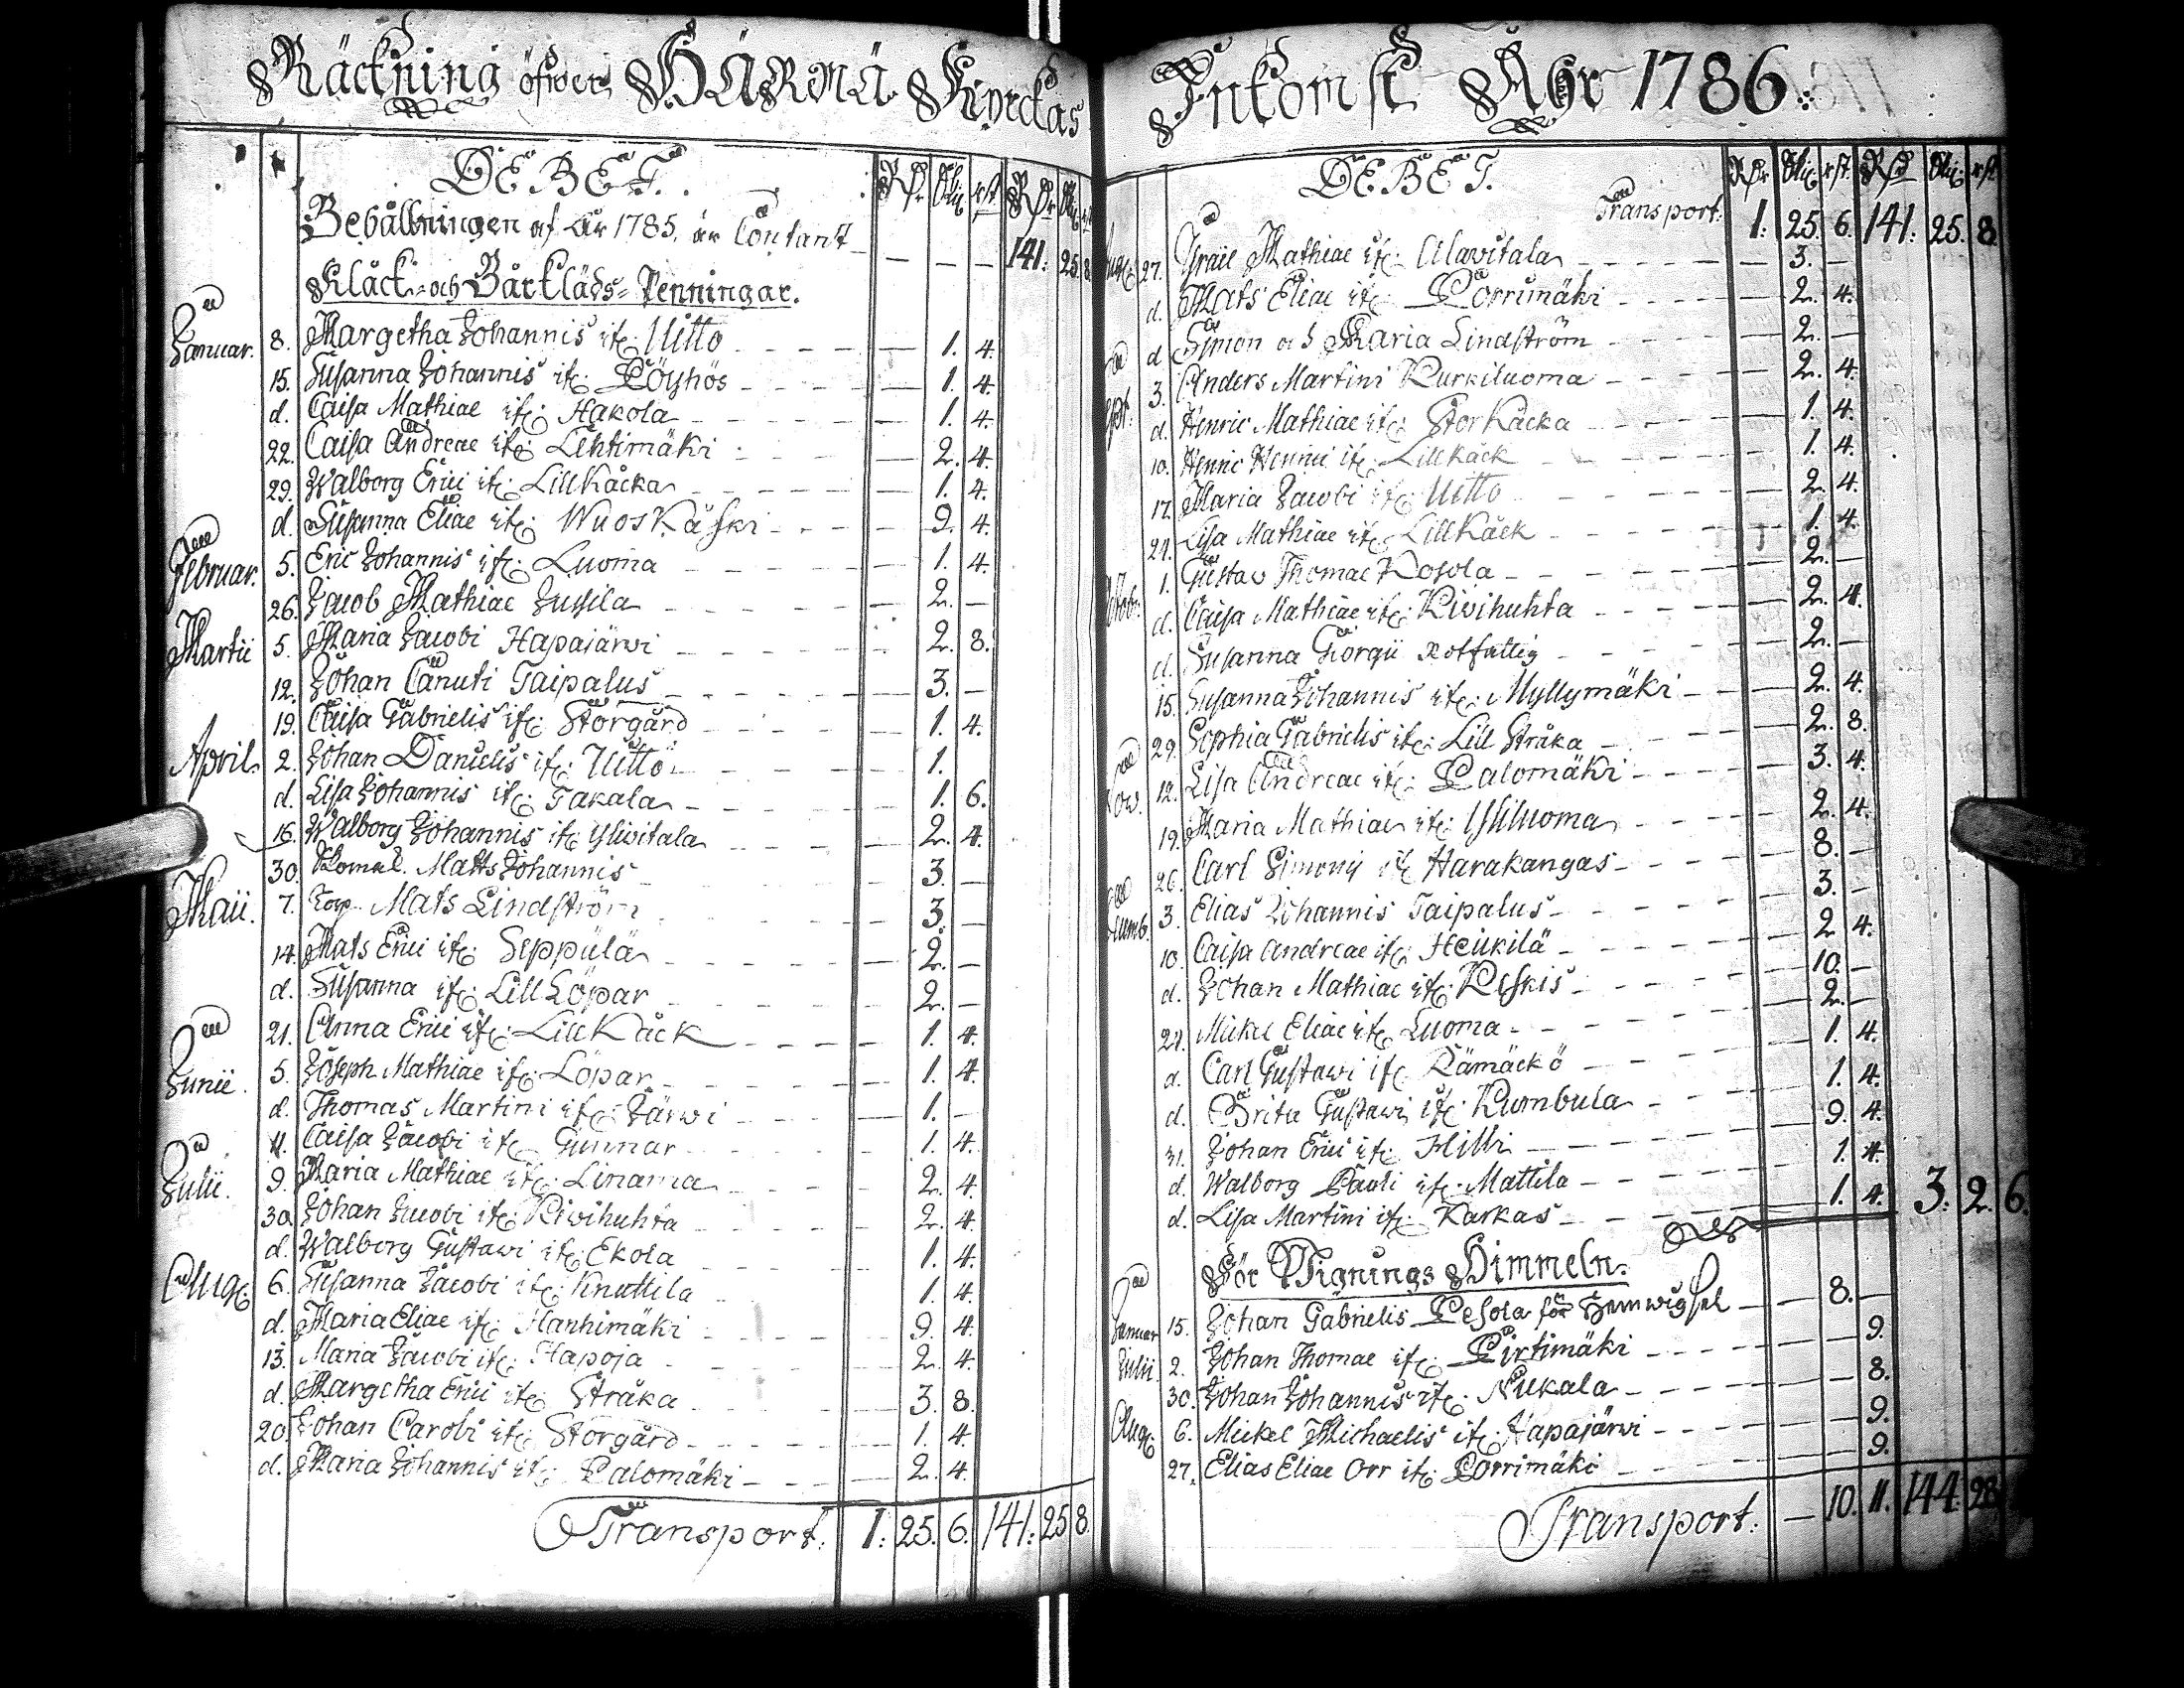 Räckning öfwer HÄRMÄ Kyrckas
DEBET.
Rdr Skg rst. Rdr Skg rst
Behållningen af År 1785. är Contant — — — 141: 25. 8.
Klåck- och Bårkläds- Penningar.
Januar. 8. Margetha Johannis itc: Uitto — 1. 4.
15. Susanna Johannis itc: Pöyhös — 1. 4.
d. Caisa Mathiae itc: Hakola — 1. 4.
22. Caisa Andreae itc: Lehtimäki — 2. 4.
29. Walborg Erici itc: Lillkåcka — 1. 4.
d. Susanna Eliae itc: Wuoskäski — 9. 4.
Februar. 5. Eric Johannis itc: Luoma — 1. 4.
26. Jacob Mathiae Jussila — 2. —
Martii 5. Maria Jacobi Hapajärwi — 2. 8.
12. Johan Canuti Taipalus — 3. —
19. Caisa Gabrielis itc: Storgård — 1. 4.
April. 2. Johan Danielis itc: Uitto — 1.
d. Lisa Johannis itc: Takala — 1. 6.
16. Walborg Johannis itc Yliwitala — 2. 4.
30. Matts Johannis — 3. —
Maii. 7. Corp. Mats Lindström — 3. —
14. Mats Erici itc: Seppälä — 2. —
d. Susanna itc: Lill Löpar — 2. —
21. Anna Erici itc: Lillkåck — 1. 4.
Junii. 5. Joseph Mathiae itc: Löpar — 1. 4.
d. Thomas Martini itc: Järwi — 1. —
11. Caisa Jacobi itc Gunnar — 1. 4.
Julii. 9. Maria Mathiae itc: Linama — 2. 4.
30. Johan Jacobi itc: Kiwihuhta — 2. 4.
d. Walborg Gustawi itc: Ekola — 1. 4.
Aug: 6. Susanna Jacobi itc: Knuttila — 1. 4.
d. Maria Eliae itc: Hanhimäki — 9. 4.
13. Maria Jacobi itc: Hapoja — 2. 4.
d. Margetha Erici itc: Stråka — 3. 8.
20. Johan Caroli itc: Storgård — 1. 4.
d. Maria Johannis itc: Palomäki — 2. 4.
Transport: 1: 25. 6. 141: 25 8.
Inkomst Åhr 1786.
DEBET.
Rdr Skg rst. Rdr Skg rst
Transport: 1: 25. 6. 141: 25. 8
Aug: 27. Israel Mathiae itc: Alawitala — 3. —
d. Mats Eliae itc: Porrimäki — 2. 4.
d Simon och Maria Lindström — 2. —
Sept. 3. Anders Martini Kurkiluoma — 2. 4.
d. Henric Mathiae itc: Storkåcka — 1. 4.
10. Henric Henrici itc: Lillkåck — 1. 4.
17. Maria Jacobi itc: Uitto — 2. 4.
24. Lisa Mathiae itc: Lillkåck — 1. 4.
Octob: 1. Gustav Thomae Kosola — 2. —
d. Caisa Mathiae itc: Kiwihuhta — 2. 4.
d. Susanna Görgii Rotfattig — 2. —
15. Susanna Johannis itc: Myllymäki — 2. 4.
29. Sophia Gabrielis itc: Lill Stråka — 2. 8.
Now. 12. Lisa Andreae itc: Palomäki — 3. 4.
19. Maria Mathiae itc: Yliluoma — 2. 4.
26. Carl Simonis itc Harakangas — 8. —
3. Elias Johannis Taipalus — 3. —
10. Caisa Andreae itc: Heikilä — 2 4.
d. Johan Mathiae itc: Keskis — 10. —
24. Mickel Eliae itc Luoma — 2. —
d. Carl Gustawi itc: Rämäckö — 1. 4.
d. Brita Gustawi itc: Kumbula — 1. 4.
31. Johan Erici itc: Hilli — 9. 4.
d. Walborg Pauli itc: Mattila — 1. 4.
d. Lisa Martini itc: Karkas — 1. 4. 3: 2. 6.
För Wignings Himmeln.
Januar 15. Johan Gabrielis Pesola för Hemwigsel — 8. —
Julii 2. Johan Thomae itc: Pirtimäki — 9.
30. Johan Johannis itc: Niukala — 8.
Aug: 6. Mickel Michaelis itc: Hapajärwi — 9.
27. Elias Eliae Orr itc: Porrimäki — 9.
Transport: — 10. 11. 144: 28